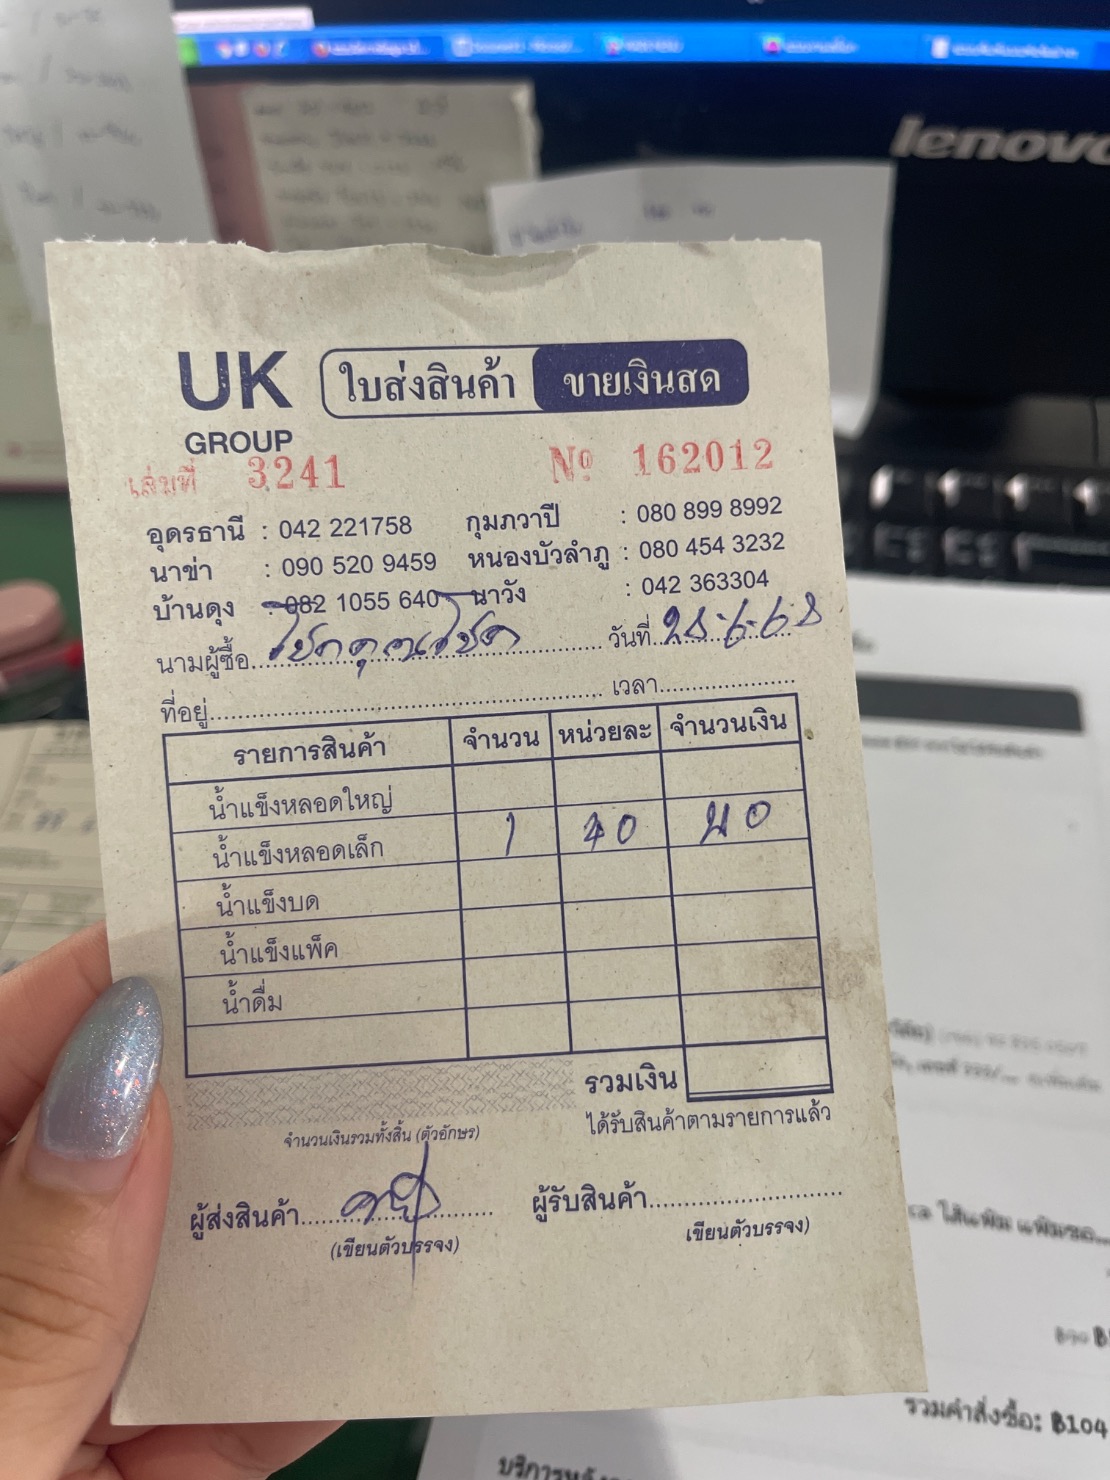 lenovo
UK
GROUP
ใบส่งสินค้า ขายเงินสด
เล่มที่ 3241 № 162012
อุดรธานี : 042 221758 กุมภวาปี : 080 899 8992
นาข่า : 090 520 9459 หนองบัวลำภู : 080 454 3232
บ้านดุง : 082 1055 640 นาวัง : 042 363304
นามผู้ซื้อ โชคคุณโชค วันที่ 28-6-68
ที่อยู่ เวลา
รายการสินค้า จำนวน หน่วยละ จำนวนเงิน
น้ำแข็งหลอดใหญ่
น้ำแข็งหลอดเล็ก 1 40 40
น้ำแข็งบด
น้ำแข็งแพ็ค
น้ำดื่ม
รวมเงิน
จำนวนเงินรวมทั้งสิ้น (ตัวอักษร) ได้รับสินค้าตามรายการแล้ว
ผู้ส่งสินค้า ผู้รับสินค้า
(เขียนตัวบรรจง) (เขียนตัวบรรจง)
รวมคำสั่งซื้อ: ฿104